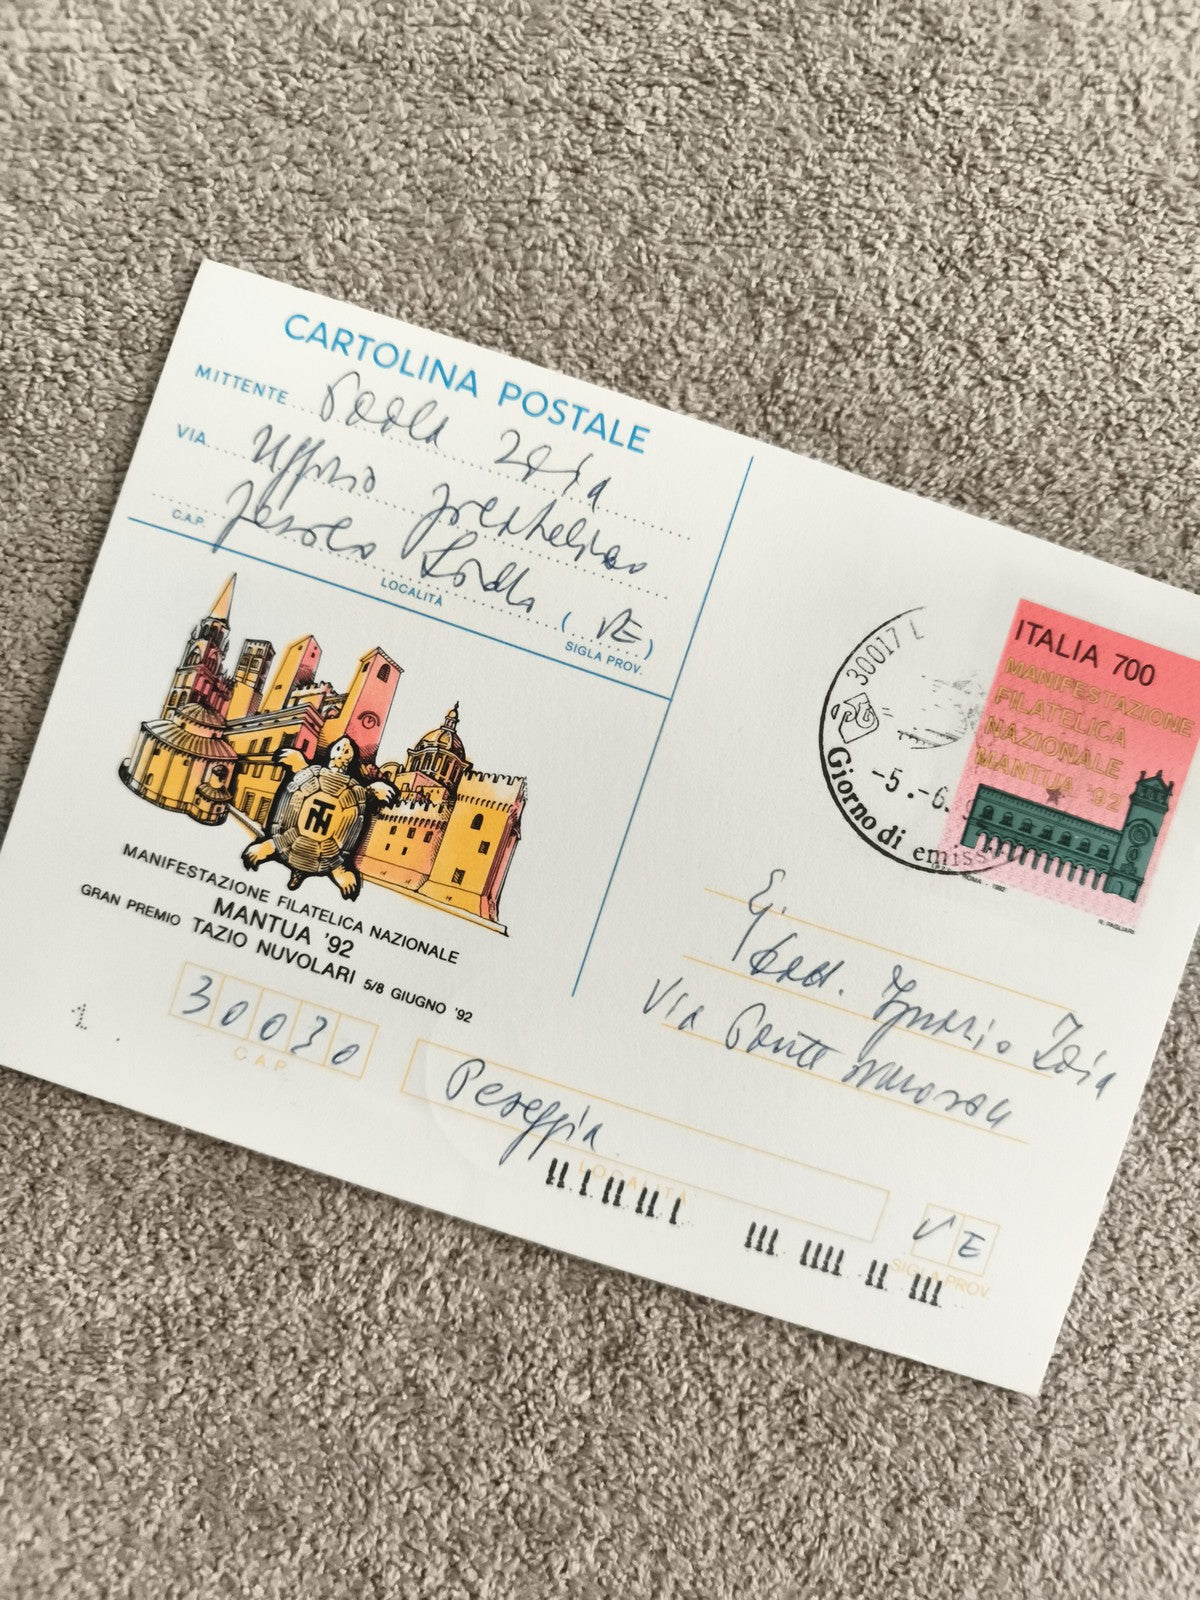 CARTOLINA POSTALE
MITTENTE Paola Zaia
VIA Ufficio
C.A.P. Jesolo Lido (VE)
LOCALITÀ
SIGLA PROV.
MANIFESTAZIONE FILATELICA NAZIONALE
MANTUA '92
GRAN PREMIO TAZIO NUVOLARI 5/8 GIUGNO '92
30030
C.A.P.
Peseggia
LOCALITÀ
VE
SIGLA PROV.
30017 L
-5.-6.
Giorno di emiss
ITALIA 700
MANIFESTAZIONE
FILATELICA
NAZIONALE
MANTUA '92
ROMA - 1992
Ignazio Zaia
Via Ponte nuovo